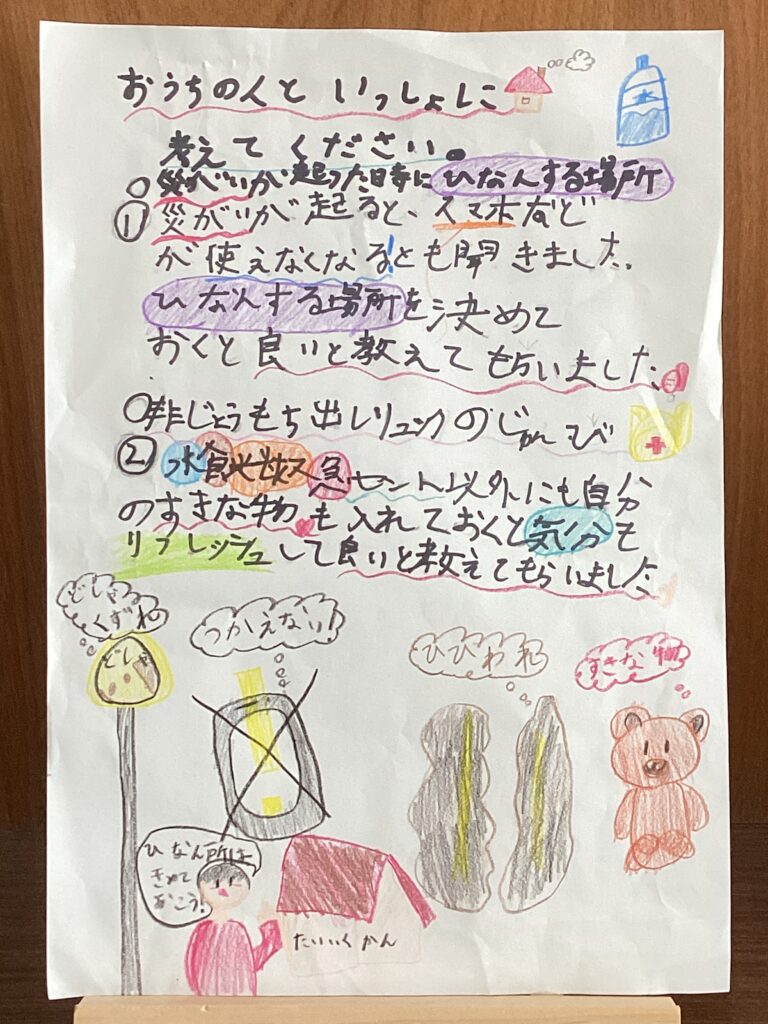 おうちの人と いっしょに
水
考えてください。
○災がいが起った時にひなんする場所
①災がいが起ると、スマホなど
が使えなくなる!とも聞きました。
ひなんする場所を決めて
おくと良いと教えてもらいました。
○非じょうもち出しリュックのじゅんび
②水食 急セット以外にも自分
のすきな物も入れておくと気分も
リフレッシュして良いと教えてもらいました
どしゃくずれ
どしゃ
つかえない!
ひびわれ
すきな物
ひなん所は
きめて
おこう!
たいいくかん